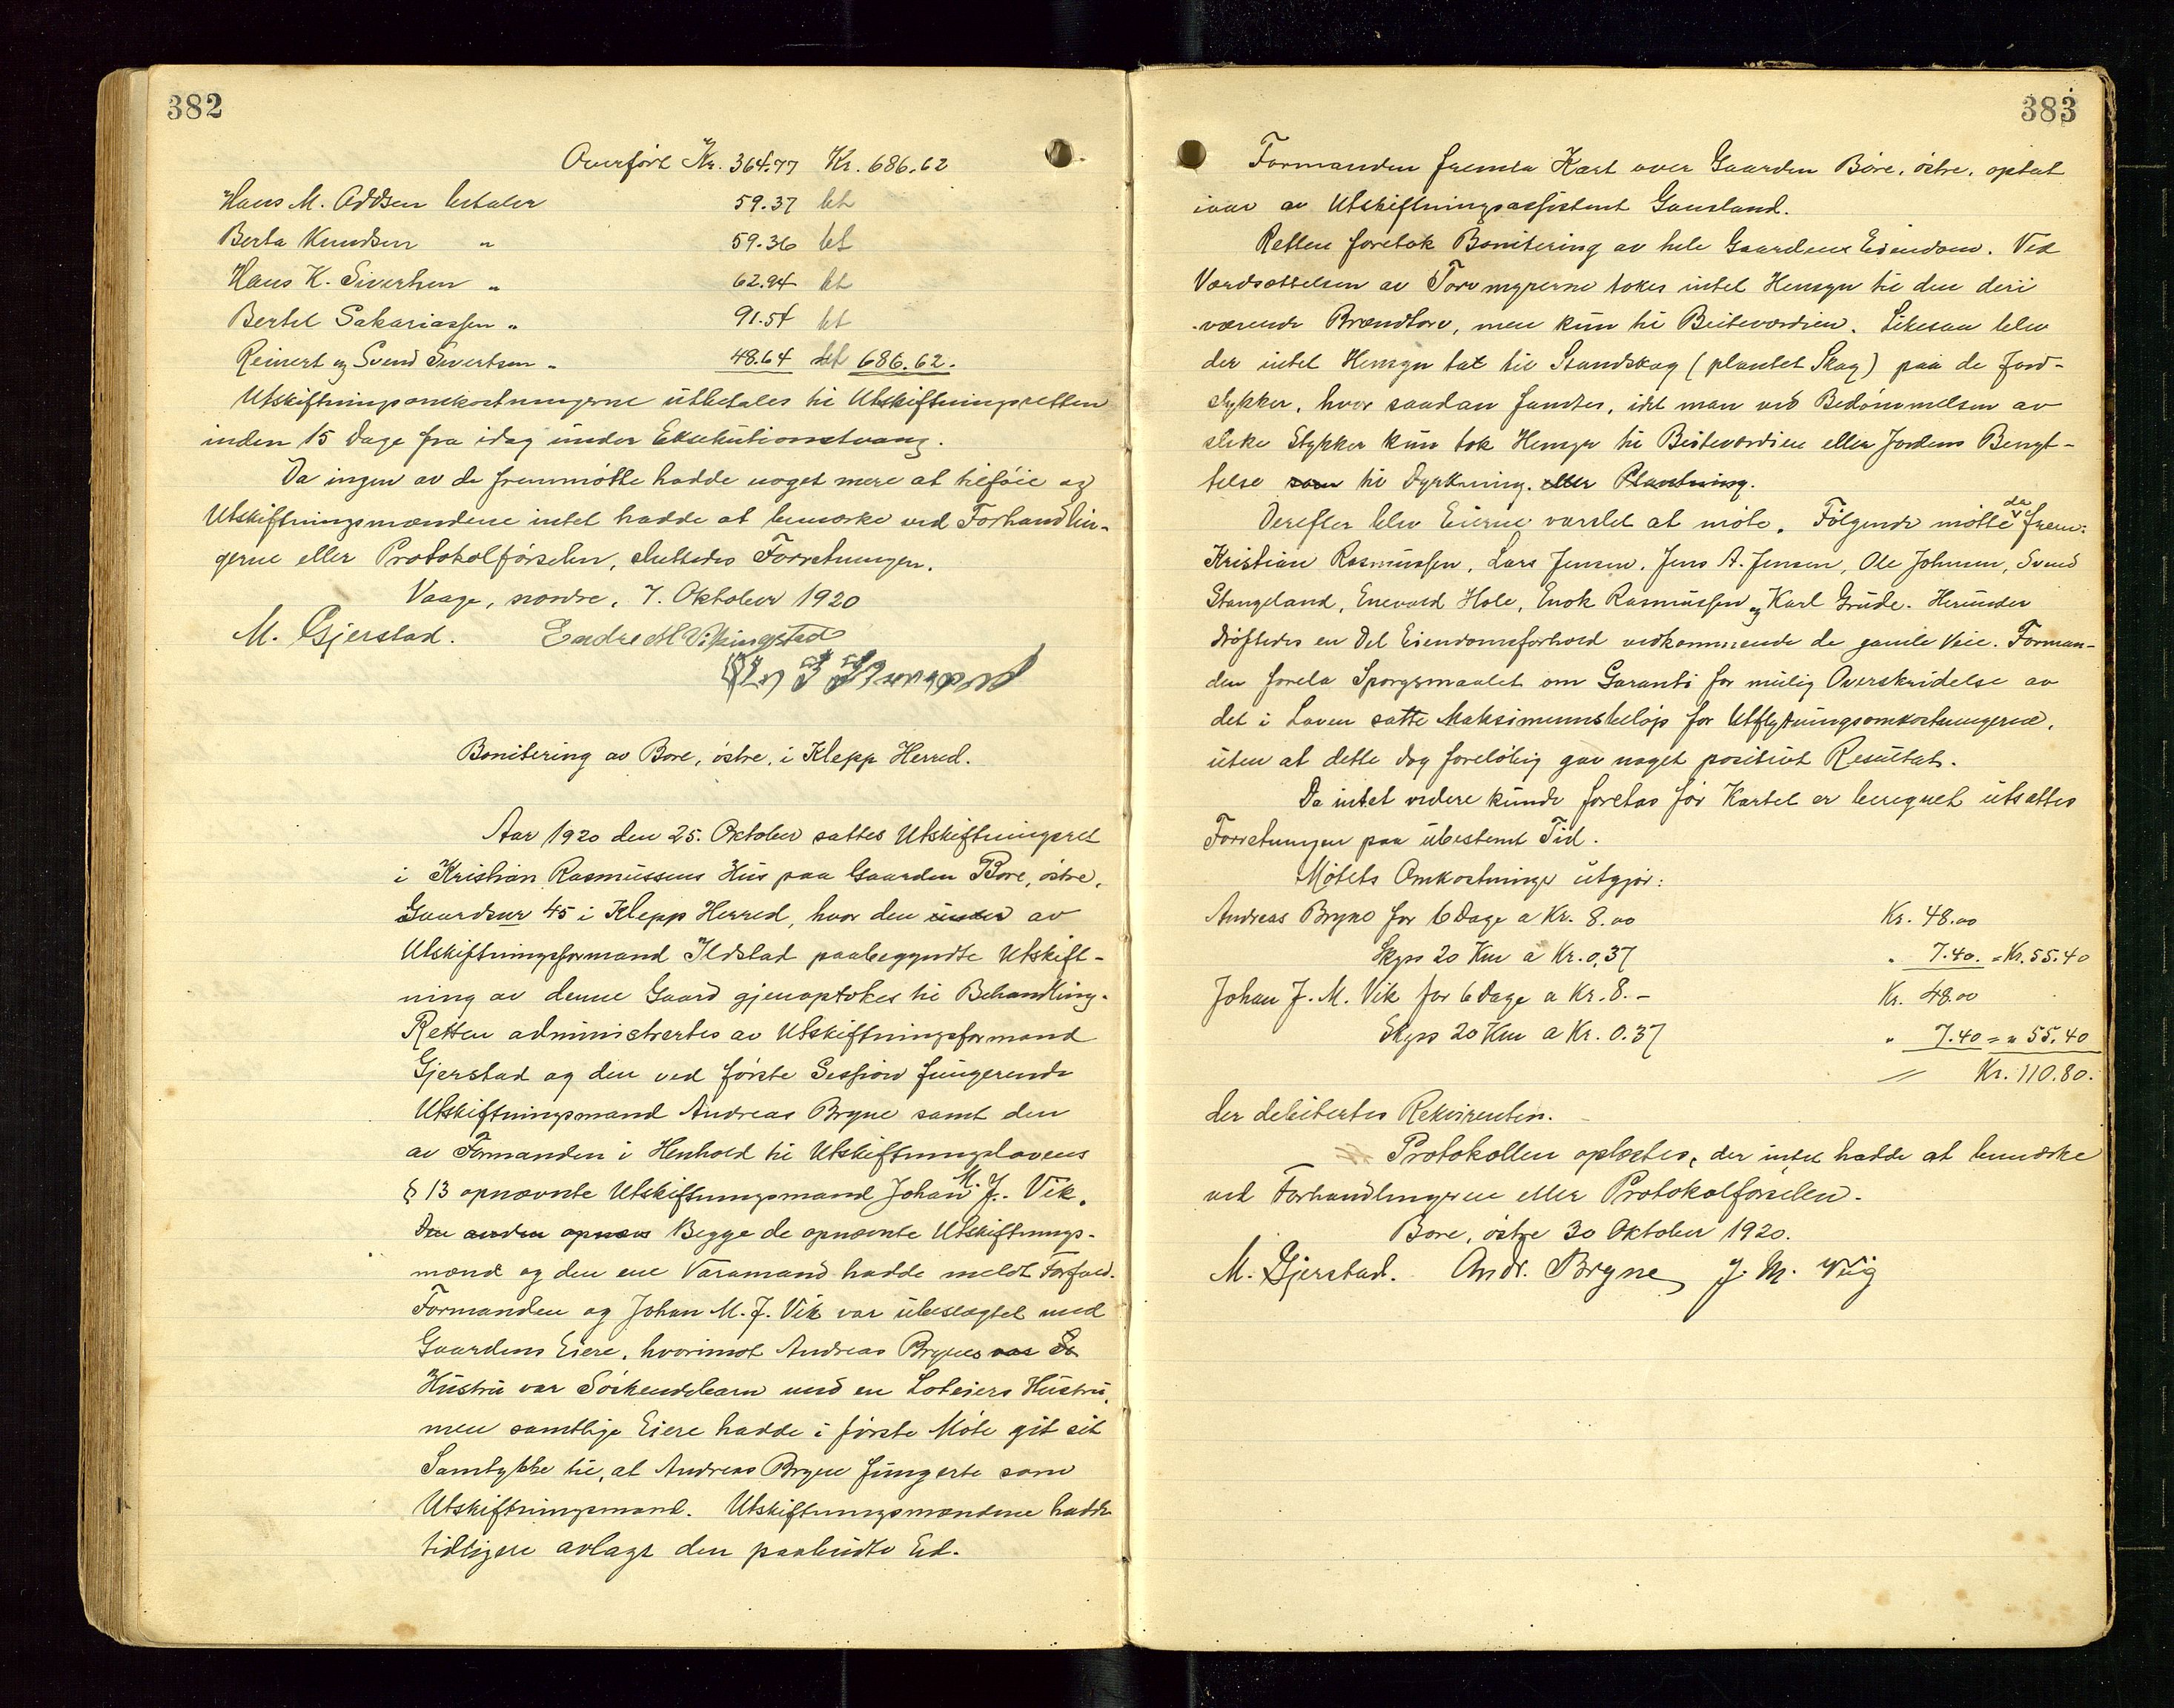 382
Overført Kr. 364.77 Kr. 686.62
Hans M. Oddsen betaler 59.37 bet
Berta Knudsen " 59.36 bet
Hans K. Sivertsen " 62.94 bet
Bertel Sakariassen " 91.54 bet
Reinert og Svend Sivertsen " 48.64 bet 686.62.
Utskiftningsomkostningerne utbetales til Utskiftningsretten
inden 15 Dage fra idag under Eksekutionstvang.
Da ingen av de fremmøtte hadde noget mere at tilføie og
Utskiftningsmændene intet hadde at bemerke ved Forhandlin-
gerne eller Protokolførselen, sluttedes Forretningen.
Vaage, nordre, 7. Oktober 1920
M. Gjerstad. Endre M Vikingstad
Bonitering av Bore, østre, i Klepp Herred.
Aar 1920 den 25. Oktober sattes Utskiftningsret
i Kristian Rasmussens Hus paa Gaarden Bore, østre,
Gaardsnr 45 i Klepp Herred, hvor den under av
Utskiftningsformand Ildstad paabegyndte Utskift-
ning av denne Gaard gjenoptokes til Behandling.
Retten administrertes av Utskiftningsformand
Gjerstad og den ved første Session fungerende
Utskiftningsmand Andreas Bryne samt den
av Formanden i Henhold til Utskiftningslovens
§ 13 opnævnte Utskiftningsmand Johan M. J. Vik.
Den anden opnævn Begge de opnævnte Utskiftnings-
mænd og den ene Varamand hadde meldt Forfald.
Formanden og Johan M. J. Vik var ubeslægtet med
Gaardens Eiere, hvorimot Andreas Brynes var Sø
Hustru var Søskendebarn med en Loteiers Hustru,
men samtlige Eiere hadde i første Møte git sit
Samtykke til, at Andreas Bryne fungerte som
Utskiftningsmand. Utskiftningsmændene hadde
tidligere avlagt den paabudte Ed.
383
Formanden fremla Kart over Gaarden Bore, østre, optat
iaar av Utskiftningsassistent Gausland.
Retten foretok Bonitering av hele Gaardens Eiendom. Ved
Værdsættelsen av Torvmyrerne tokes intet Hensyn til den deri
værende Brændtorv, men kun til Beiteværdien. Likesaa blev
der intet Hensyn tat til Standskog (plantet Skog) paa de Jord-
stykker, hvor saadan fandtes, idet man ved Bedømmelsen av
slike Stykker kun tok Hensyn til Beiteværdien eller Jordens Benyt-
telse som til Dyrkning. eller Plantning.
Derefter blev Eierne varslet at møte. Følgende møtte da frem:
Kristian Rasmussen, Lars Jensen, Jens A. Jensen, Ole Johnsen, Svend
Stangeland, Enevald Hole, Enok Rasmussen og Karl Grude. Herunder
drøftedes en Del Eiendomsforhold vedkommende de gamle Veie. Forman-
den forela Spørgsmaalet om Garanti for mulig Overskridelse av
det i Loven satte Maksimumsbeløp for Utflytningsomkostningerne,
uten at dette dog foreløbig gav noget positivt Resultat.
Da intet videre kunde foretas før Kartet er beregnet utsattes
Forretningen paa ubestemt Tid.
Møtets Omkostninger utgjør:
Andreas Bryne for 6 Dage a Kr. 8.00 Kr. 48.00
Skyss 20 Km a Kr. 0,37 " 7.40. = Kr. 55.40
Johan J. M. Vik for 6 Dage a Kr. 8.- Kr. 48.00
Skyss 20 Km a Kr. 0.37 " 7.40 = " 55.40
Kr. 110.80.
der debitertes Rekvirenten.
Protokollen oplæstes, der intet hadde at bemerke
ved Forhandlingerne eller Protokolførselen.
Bore, østre 30 Oktober 1920.
M. Gjerstad. Andr. Bryne J. M. Viig